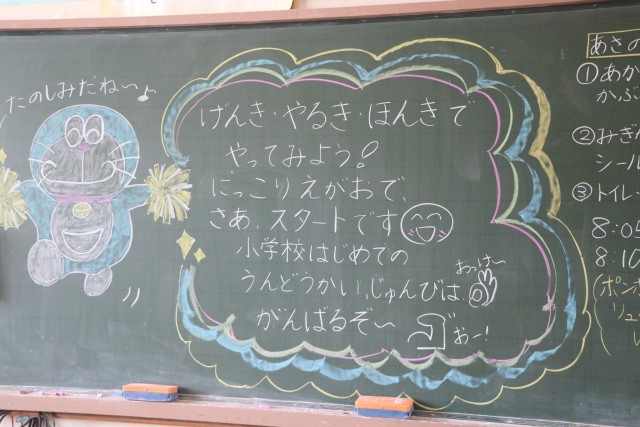 たのしみだね〜♪
げんき・やるき・ほんきで
やってみよう!
にっこりえがおで、
さあ、スタートです
小学校はじめての
うんどうかい、じゅんびは
おっけ〜
がんばるぞ〜
お〜!
あさの
①あか
かぶ
②みぎ
シール
③トイレ
8:05
8:10
(ポンポ
リュ